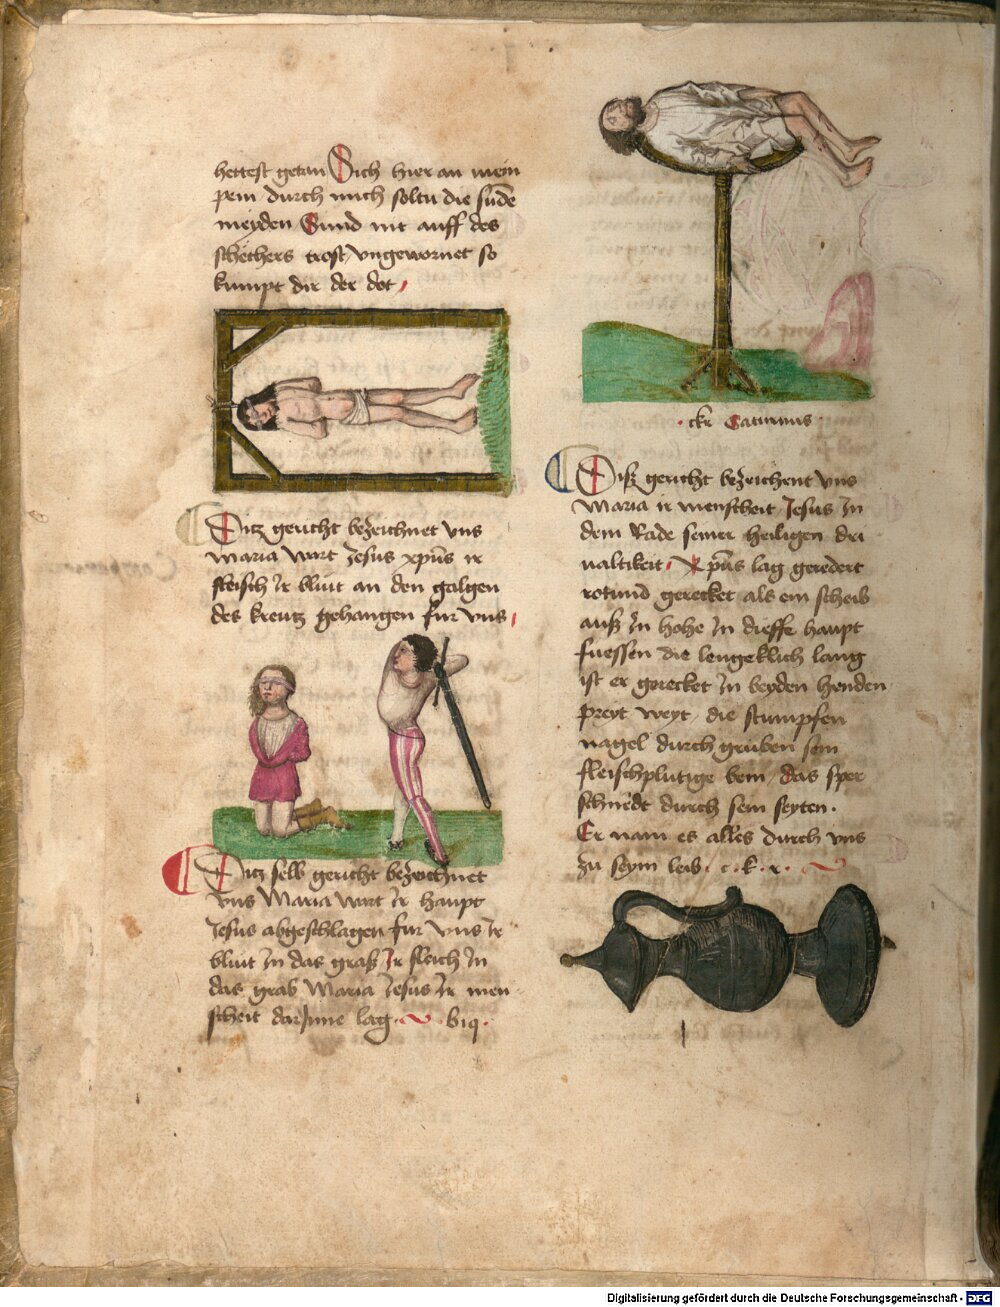 hettest getan Dich hier an mein
pein durch mich soltu die sunde
meyden Sund nit auff des
schechers trost vngewornet so
kumpt dir der dot
Ditz gericht bezeichnet vns
maria wart Jesus xpūs ir
fleisch Ir bluit an den galgen
des kreutz gehangen fur vns
Ditz selb gericht bezeichnet
vns Maria wart Ir haupt
Jesus abgeschlagen fur vns Ir
bluit In das graß Ir fleich In
das grab Maria Jesus Ir men
scheit darJnne lag
ckr Saturnus
Diß gericht bezeichent vns
Maria ir menscheit Jesus In
dem Rade seiner heiligen dri
ualtikeit xpūs lag geredert
rotund gerecket als ein scheib
auß In hohe In dieffe haupt
fuessen die lengeklich lang
ist er gerecket In beyden henden
preyt weyt die stumpfen
nagel durch gruben sein
fleischplutige bein das sper
schniedt durch sein seyten.
Er nam es alles durch vns
zu seym leib. c. k. r.
Digitalisierung gefördert durch die Deutsche Forschungsgemeinschaft - DFG